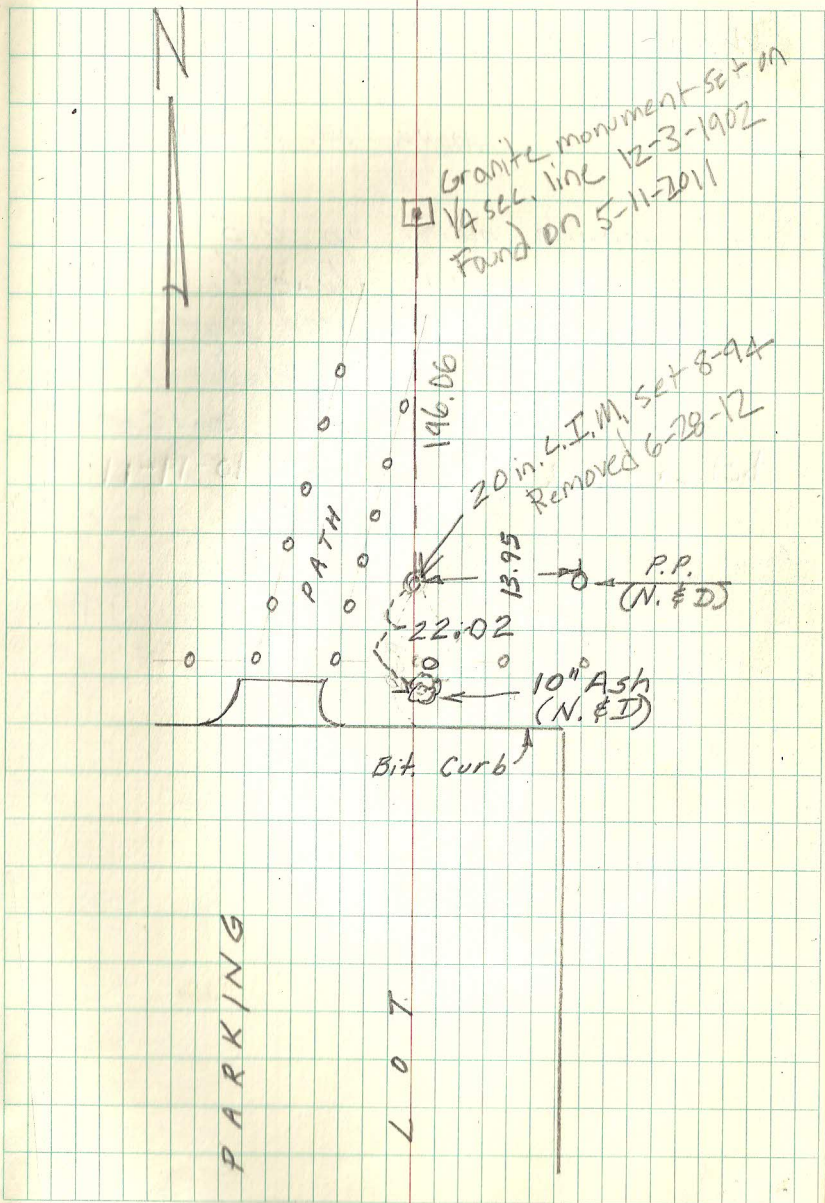 N
Granite monument set on
1/4 sec. line 12-3-1902
Found on 5-11-2011
196.06
20 in. C.I.M. set 8-94
Removed 6-28-12
PATH
13.95
P.P.
(N. & D)
22.02
10" Ash
(N. & D)
Bit. Curb
PARKING
LOT